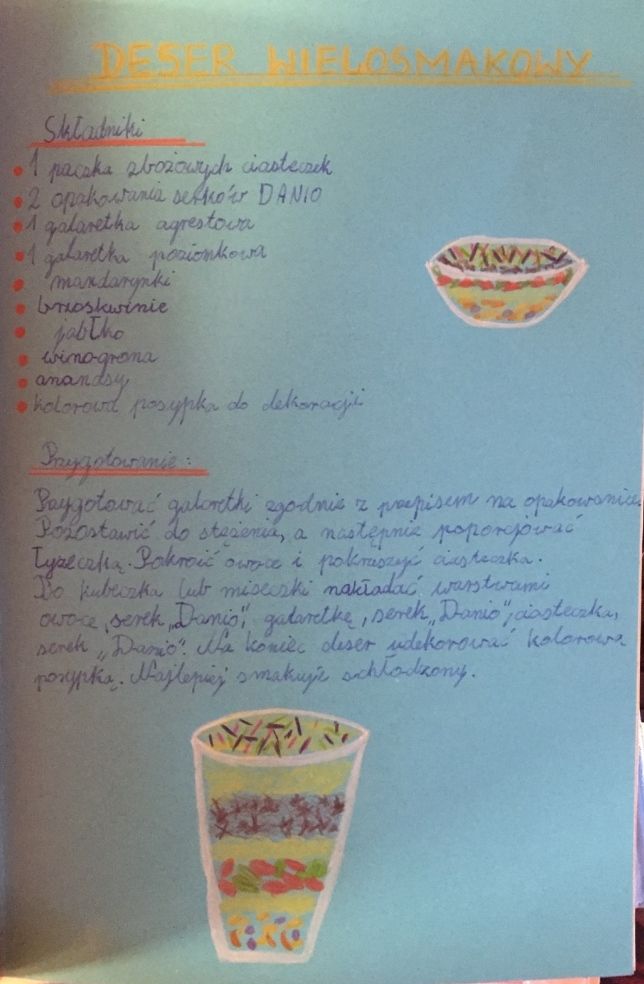 DESER WIELOSMAKOWY
Składniki
1 paczka zbożowych ciasteczek
2 opakowania serków DANIO
1 galaretka agrestowa
1 galaretka poziomkowa
mandarynki
brzoskwinie
jabłko
winogrona
ananasy
kolorowa posypka do dekoracji
Przygotowanie:
Przygotować galaretki zgodnie z przepisem na opakowaniu.
Pozostawić do stężenia, a następnie poporcjować
łyżeczką. Pokroić owoce i pokruszyć ciasteczka.
Do kubeczka lub miseczki nakładać warstwami
owoce, serek „Danio", galaretkę, serek „Danio", ciasteczka,
serek „Danio". Na koniec deser udekorować kolorową
posypką. Najlepiej smakuje schłodzony.